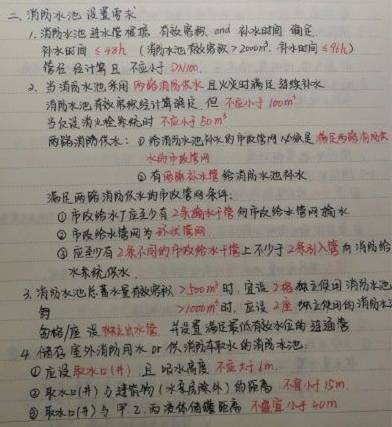 二、消防水池设置需求
1. 消防水池进水管根据 有效容积 and 补水时间 确定
补水时间 ≤48h (消防水池有效容积>2000m³. 补水时间 ≤96h)
管径经计算且 不应小于 DN100.
2. 当消防水池采用 两路消防供水 且火灾时满足持续补水
消防水池有效容积经计算确定 但 不应小于100m³
当仅设消火栓系统时 不应小于50m³
两路消防供水: ① 给消防水池补水的市政管网必须是 满足两路消防供
水的市政管网
② 有两路补水管 给消防水池补水.
满足两路消防供水的市政管网条件:
① 市政给水厂应至少有 2条输水干管 向市政给水管网输水
② 市政给水管网为 环状管网.
③ 应至少有 2条不同的市政给水干管 上不少于 2条引入管 向消防给
水系统供水.
3. 消防水池总蓄水量有效容积 >500m³ 时, 宜设 2格 独立使用消防水池
>1000m³ 时, 应设 2座 独立使用的消防水
每格/座 设 独立出水管 并设置满足最低有效水位的连通管
4. 储存室外消防用水 or 供消防车取水的消防水池.
① 应设 取水口(井) 且 吸水高度 不应大于6m.
② 取水口(井) 与建筑物 (水泵房除外) 的距离 不宜小于15m
③ 取水口(井) 与 甲.乙.丙液体储罐距离 不宜小于40m